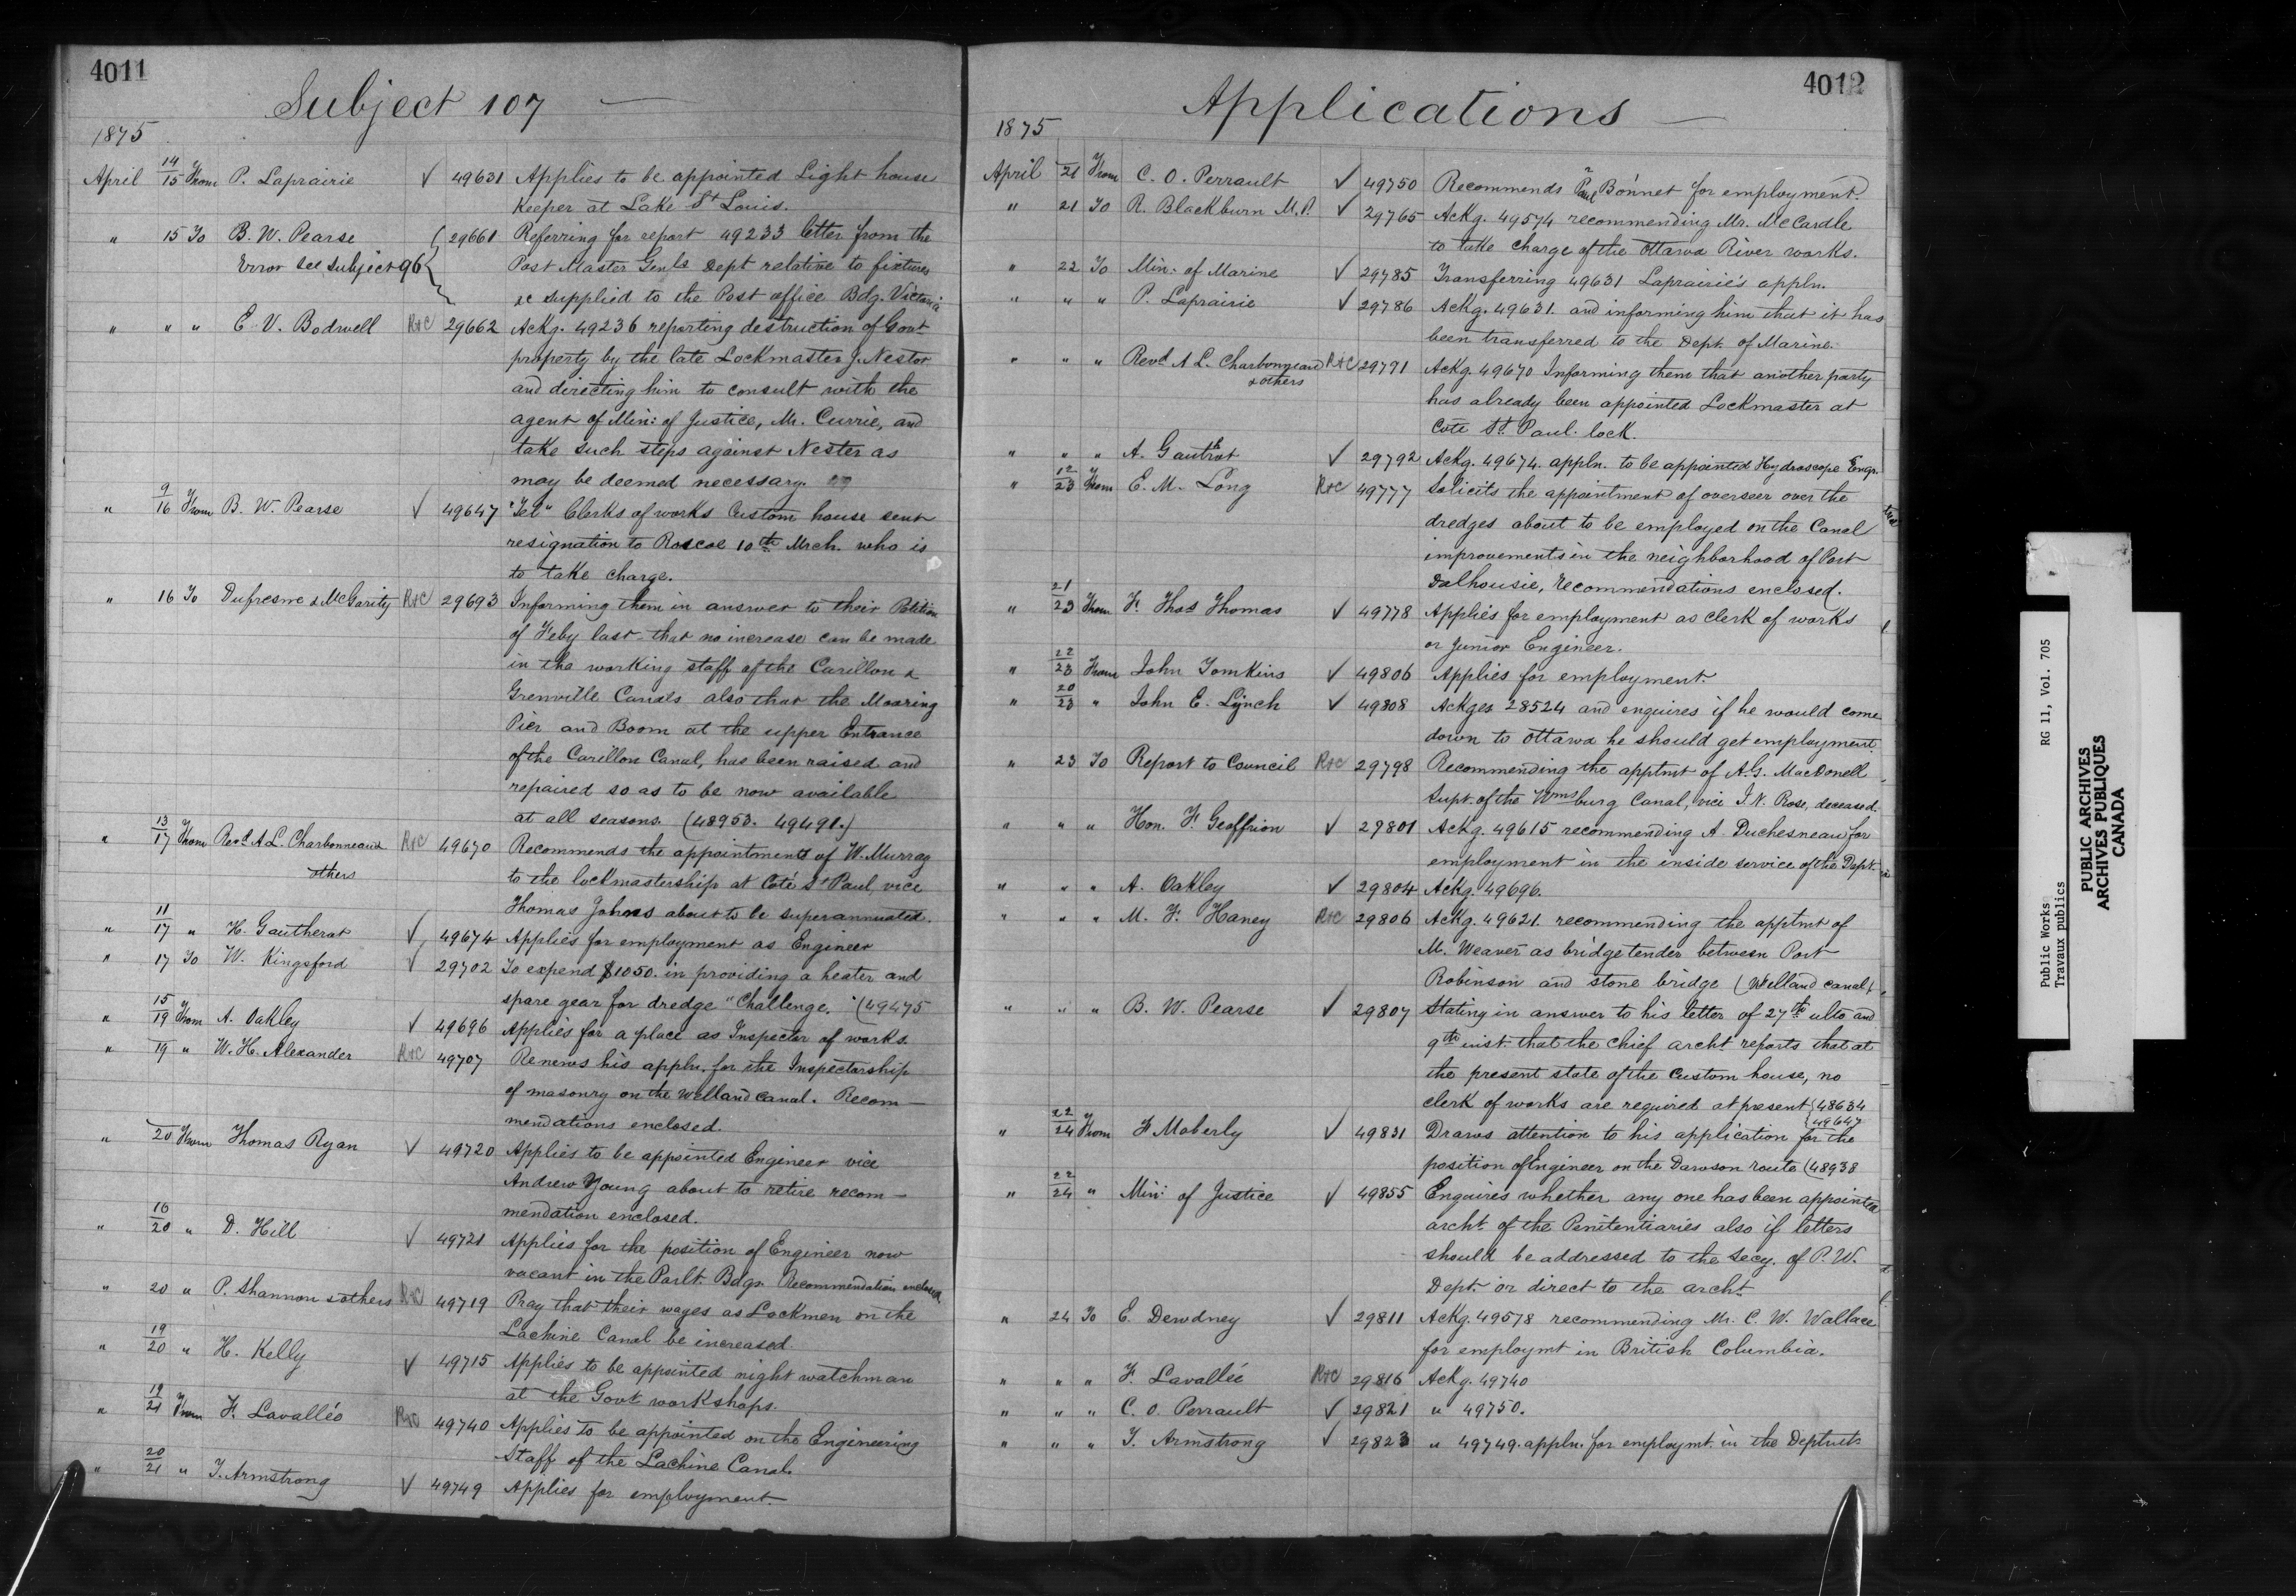 4011
Subject 107
1875
April 14/15 From P. Laprairie √ 49631 Applies to be appointed Light house
Keeper at Lake St Louis.
" 15 To B. W. Pearse 29661 Referring for report 49233 letter from the
Error see subject 96 Post Master Genls Dept relative to fixtures
&c supplied to the Post office Bdg. Victoria
" " " E. V. Bodwell R&C 29662 Ackg. 49236 reporting destruction of Govt
property by the late Lockmaster J. Nestor
and directing him to consult with the
agent of Min: of Justice, Mr. Currie, and
take such steps against Nester as
may be deemed necessary.
" 9/16 From B. W. Pearse √ 49647 "Tel" Clerks of works Custom house sent
resignation to Roscoe 10th Mrch. who is
to take charge.
" 16 To Dufresne & McGarity R&C 29693 Informing them in answer to their Petition
of Feby last that no increase can be made
in the working staff of the Carillon &
Grenville Canals also that the Mooring
Pier and Boom at the upper Entrance
of the Carillon Canal, has been raised and
repaired so as to be now available
at all seasons. (48953. 49491.)
" 13/17 From Revd. A. L. Charbonneau R&C 49670 Recommends the appointment of W. Murray
others to the lockmastership at Coté St Paul, vice
Thomas Johns about to be superannuated.
" 11/17 " H. Gautherot √ 49674 Applies for employment as Engineer
" 17 To W. Kingsford √ 29702 To expend $1050. in providing a heater and
spare gear for dredge "Challenge." (49475
" 15/19 From A. Oakley √ 49696 Applies for a place as Inspector of works.
" 19 " W. H. Alexander R&C 49707 Renews his appln. for the Inspectorship
of masonry on the Welland Canal. Recom-
mendations enclosed.
" 20 From Thomas Ryan √ 49720 Applies to be appointed Engineer vice
Andrew Young about to retire recom-
mendation enclosed.
" 16/20 " D. Hill √ 49721 Applies for the position of Engineer now
vacant in the Parlt. Bdgs. Recommendation enclosed
" 20 " P. Shannon & others R&C 49719 Pray that their wages as Lockmen on the
Lachine Canal be increased.
" 19/20 " H. Kelly √ 49715 Applies to be appointed night watchman
at the Govt workshops.
" 19/21 From F. Lavallée R&C 49740 Applies to be appointed on the Engineering
Staff of the Lachine Canal.
" 20/21 " T. Armstrong √ 49749 Applies for employment
4012
Applications
1875
April 21 From C. O. Perrault √ 49750 Recommends Paul Bonnet for employment.
" 21 To R. Blackburn M.P. √ 29765 Ackg. 49574 recommending Mr. McCardle
to take charge of the Ottawa River works.
" 22 To Min. of Marine √ 29785 Transferring 49631 Laprairie's appln.
" " " P. Laprairie √ 29786 Ackg. 49631. and informing him that it has
been transferred to the Dept. of Marine.
" " " Revd. A L. Charbonneau R&C 29791 Ackg. 49670 Informing them that another party
& others has already been appointed Lockmaster at
Côté St. Paul. lock.
" " " A. Gautrot √ 29792 Ackg. 49674. appln. to be appointed Hydroscope Engr.
" 12/23 From E. M. Long R&C 49777 Solicits the appointment of overseer over the
dredges about to be employed on the Canal
improvements in the neighborhood of Port
Dalhousie, recommendations enclosed.
" 21/23 From F. Thos Thomas √ 49778 Applies for employment as clerk of works
or Junior Engineer.
" 22/23 From John Tomkins √ 49806 Applies for employment.
" 20/23 " John E. Lynch √ 49808 Ackges 28524 and enquires if he would come
down to Ottawa he should get employment.
" 23 To Report to Council R&C 29798 Recommending the apptmt of A. G. MacDonell
Supt. of the Wmsburg Canal, vice I. N. Rose, deceased.
" " " Hon. F. Geoffrion √ 29801 Ackg. 49615 recommending A Duchesneau for
employment in the inside service of the Dept.
" " " A. Oakley √ 29804 Ackg. 49696.
" " " M. F. Haney R&C 29806 Ackg. 49621. recommending the apptmt of
M. Weaver as bridge tender between Port
Robinson and stone bridge (Welland canal)
" " " B. W. Pearse √ 29807 Stating in answer to his letter of 27th ulto and
9th inst. that the Chief archt reports that at
the present state of the Custom house, no
clerk of works are required at present {48634
{49647
" 22/24 From F Moberly √ 49831 Draws attention to his application for the
position of Engineer on the Dawson route (48938
" 22/24 " Min: of Justice √ 49855 Enquires whether any one has been appointed
archt. of the Penitentiaries also if letters
should be addressed to the Secy. of P. W.
Dept. or direct to the archt.
" 24 To E. Dewdney √ 29811 Ackg. 49578 recommending Mr. C. W. Wallace
for employmt in British Columbia.
" " " F. Lavallée R&C 29816 Ackg. 49740
" " " C. O. Perrault √ 29821 " 49750.
" " " T. Armstrong √ 29823 " 49749. appln. for employmt. in the Deptmt.
Public Works RG 11, Vol. 705
Travaux publics
PUBLIC ARCHIVES
ARCHIVES PUBLIQUES
CANADA